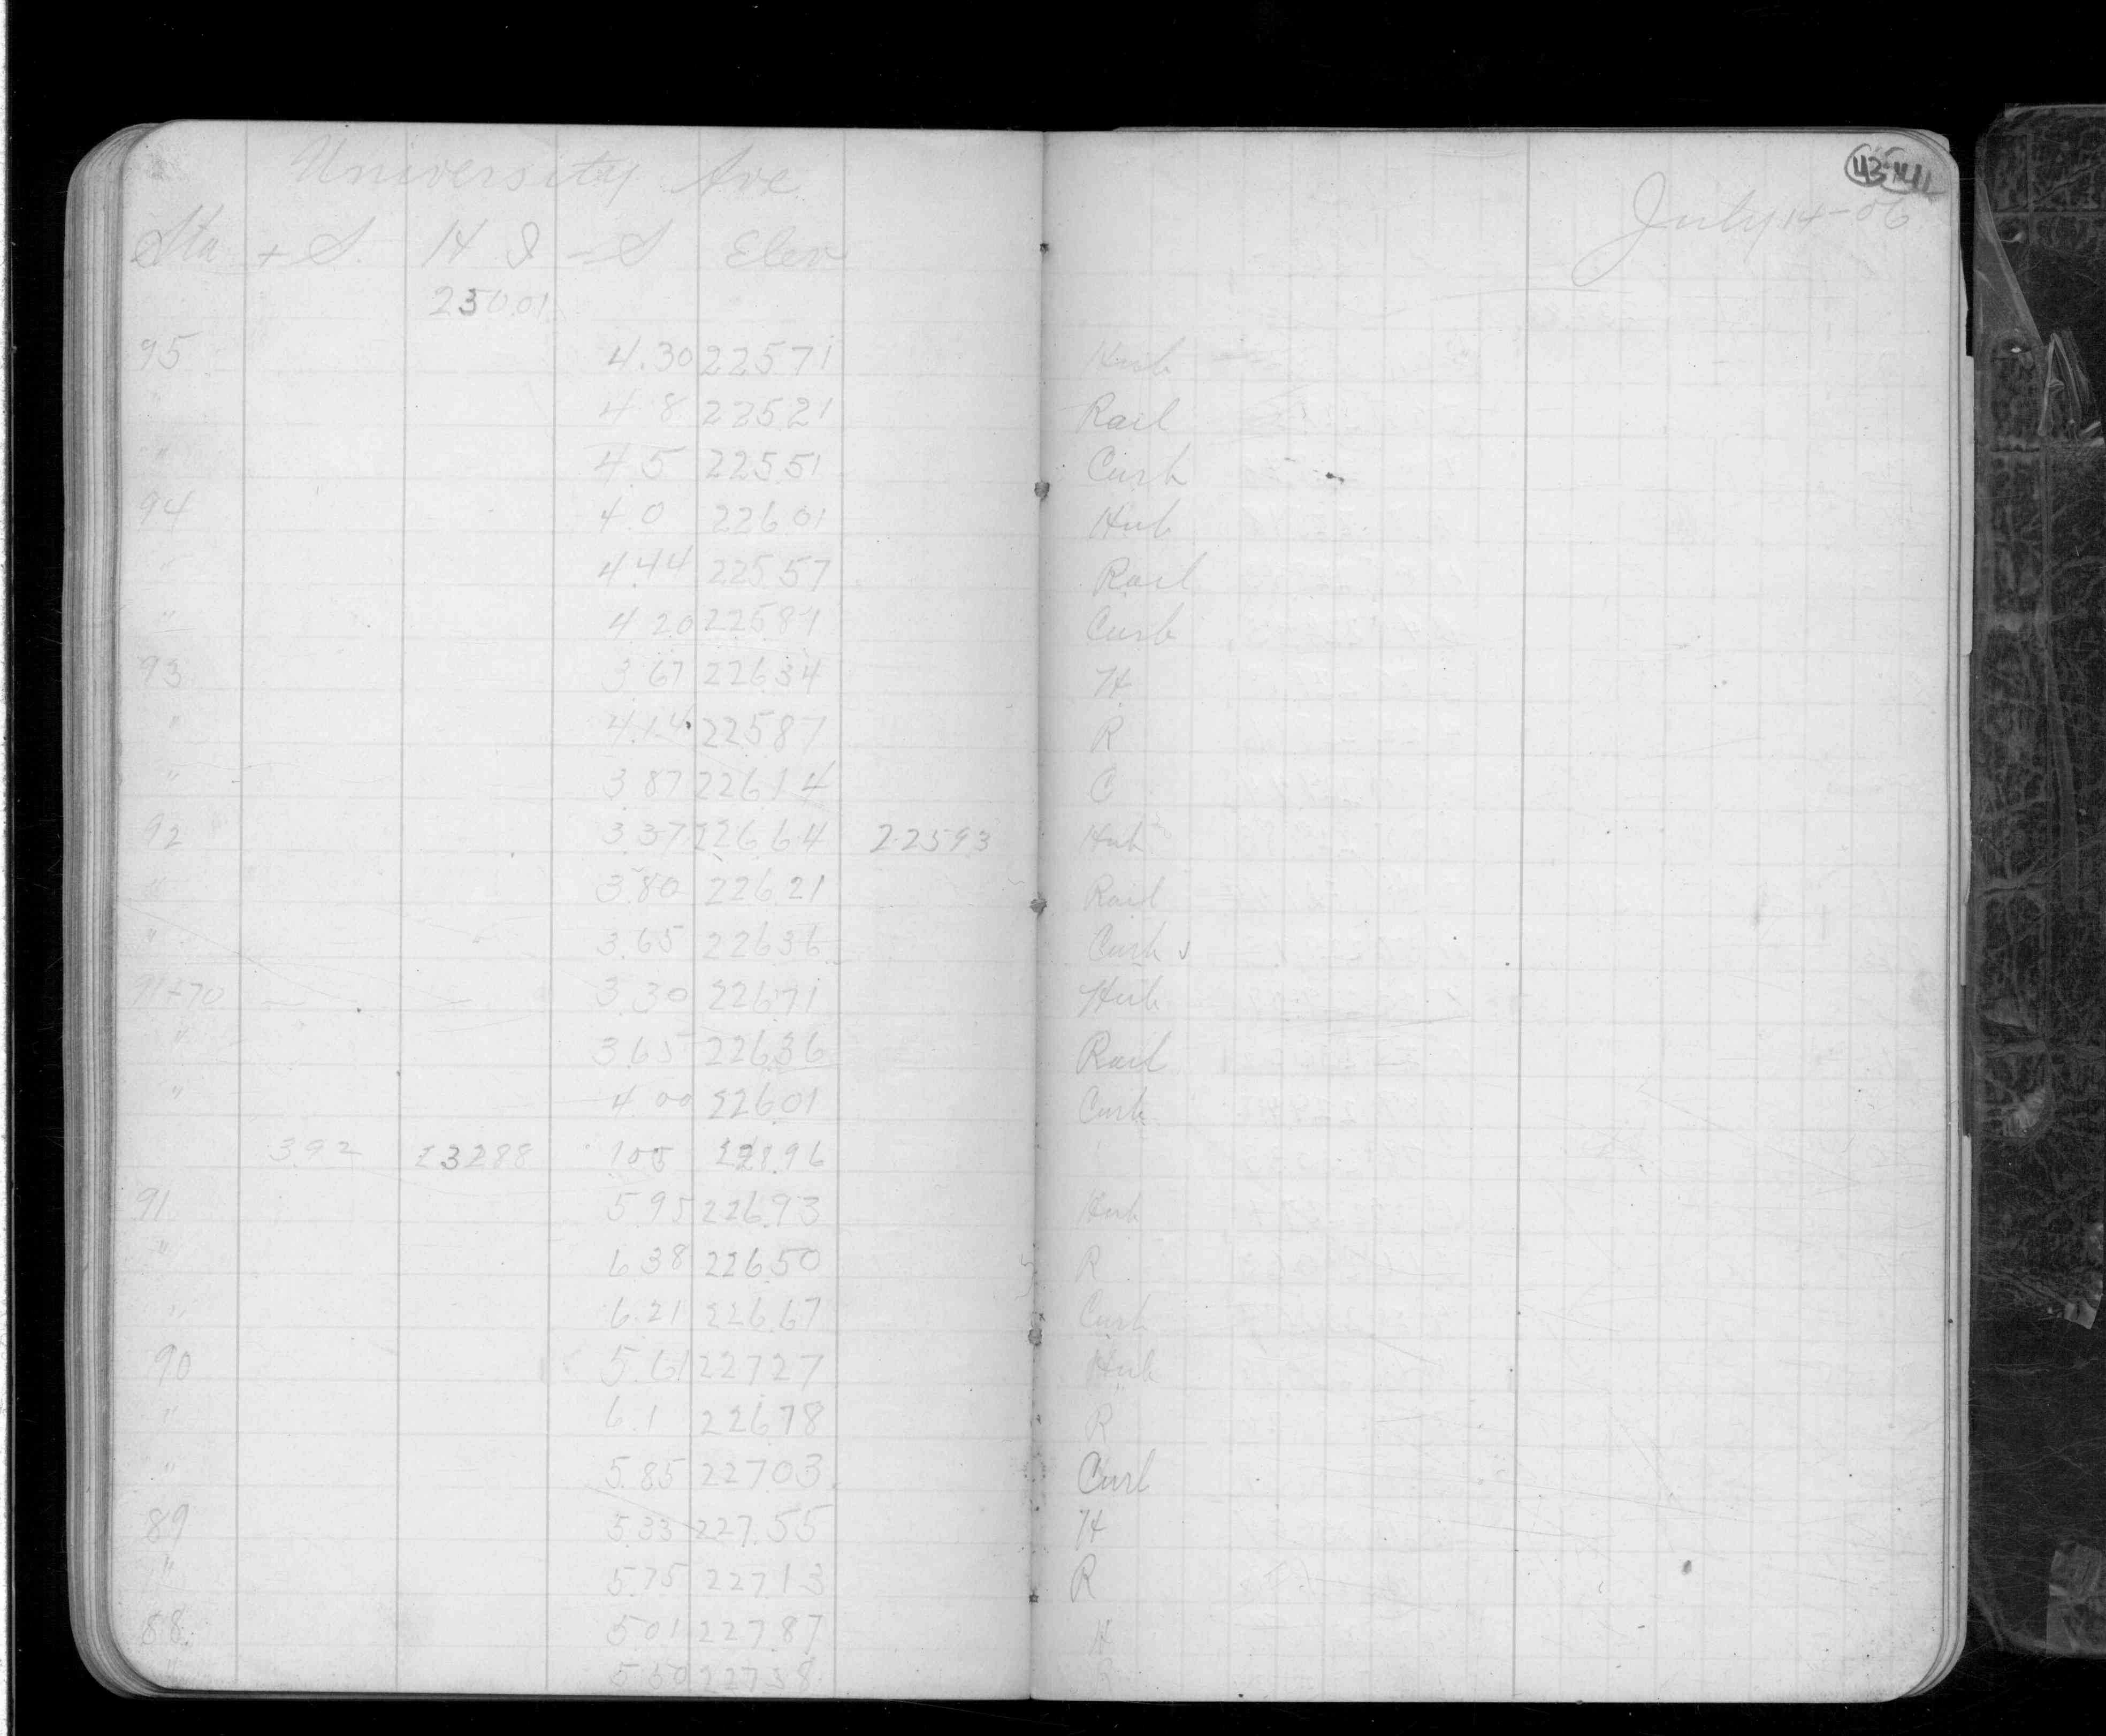 University Ave
43-44
July 14-06
Sta + S. H I - S Elev
230.01
95 4.30 225 71 Hub
" 4 8 225 21 Rail
" 4 5 225 51 Curb
94 4.0 226 01 Hub
" 4.44 225 57 Rail
" 4 20 225 81 Curb
93 3 67 226 34 H
" 4.14 225 87 R
" 3.87 226 14 C
92 3 37 226 64 225 93 Hub
" 3.80 226 21 Rail
" 3.65 226 36 Curb
91+70 3 30 226 71 Hub
" 3.65 226.36 Rail
" 4 00 226 01 Curb
3.92 232 88 1 05 228.96
91 5.95 226.93 Hub
" 6 38 226.50 R
" 6.21 226 67 Curb
90 5.61 227 27 Hub
" 6.1 226 78 R
" 5.85 227 03 Curb
89 5.33 227.55 H
" 5.75 227 13 R
88 5 01 227 87 H
" 5 30 227 58 R